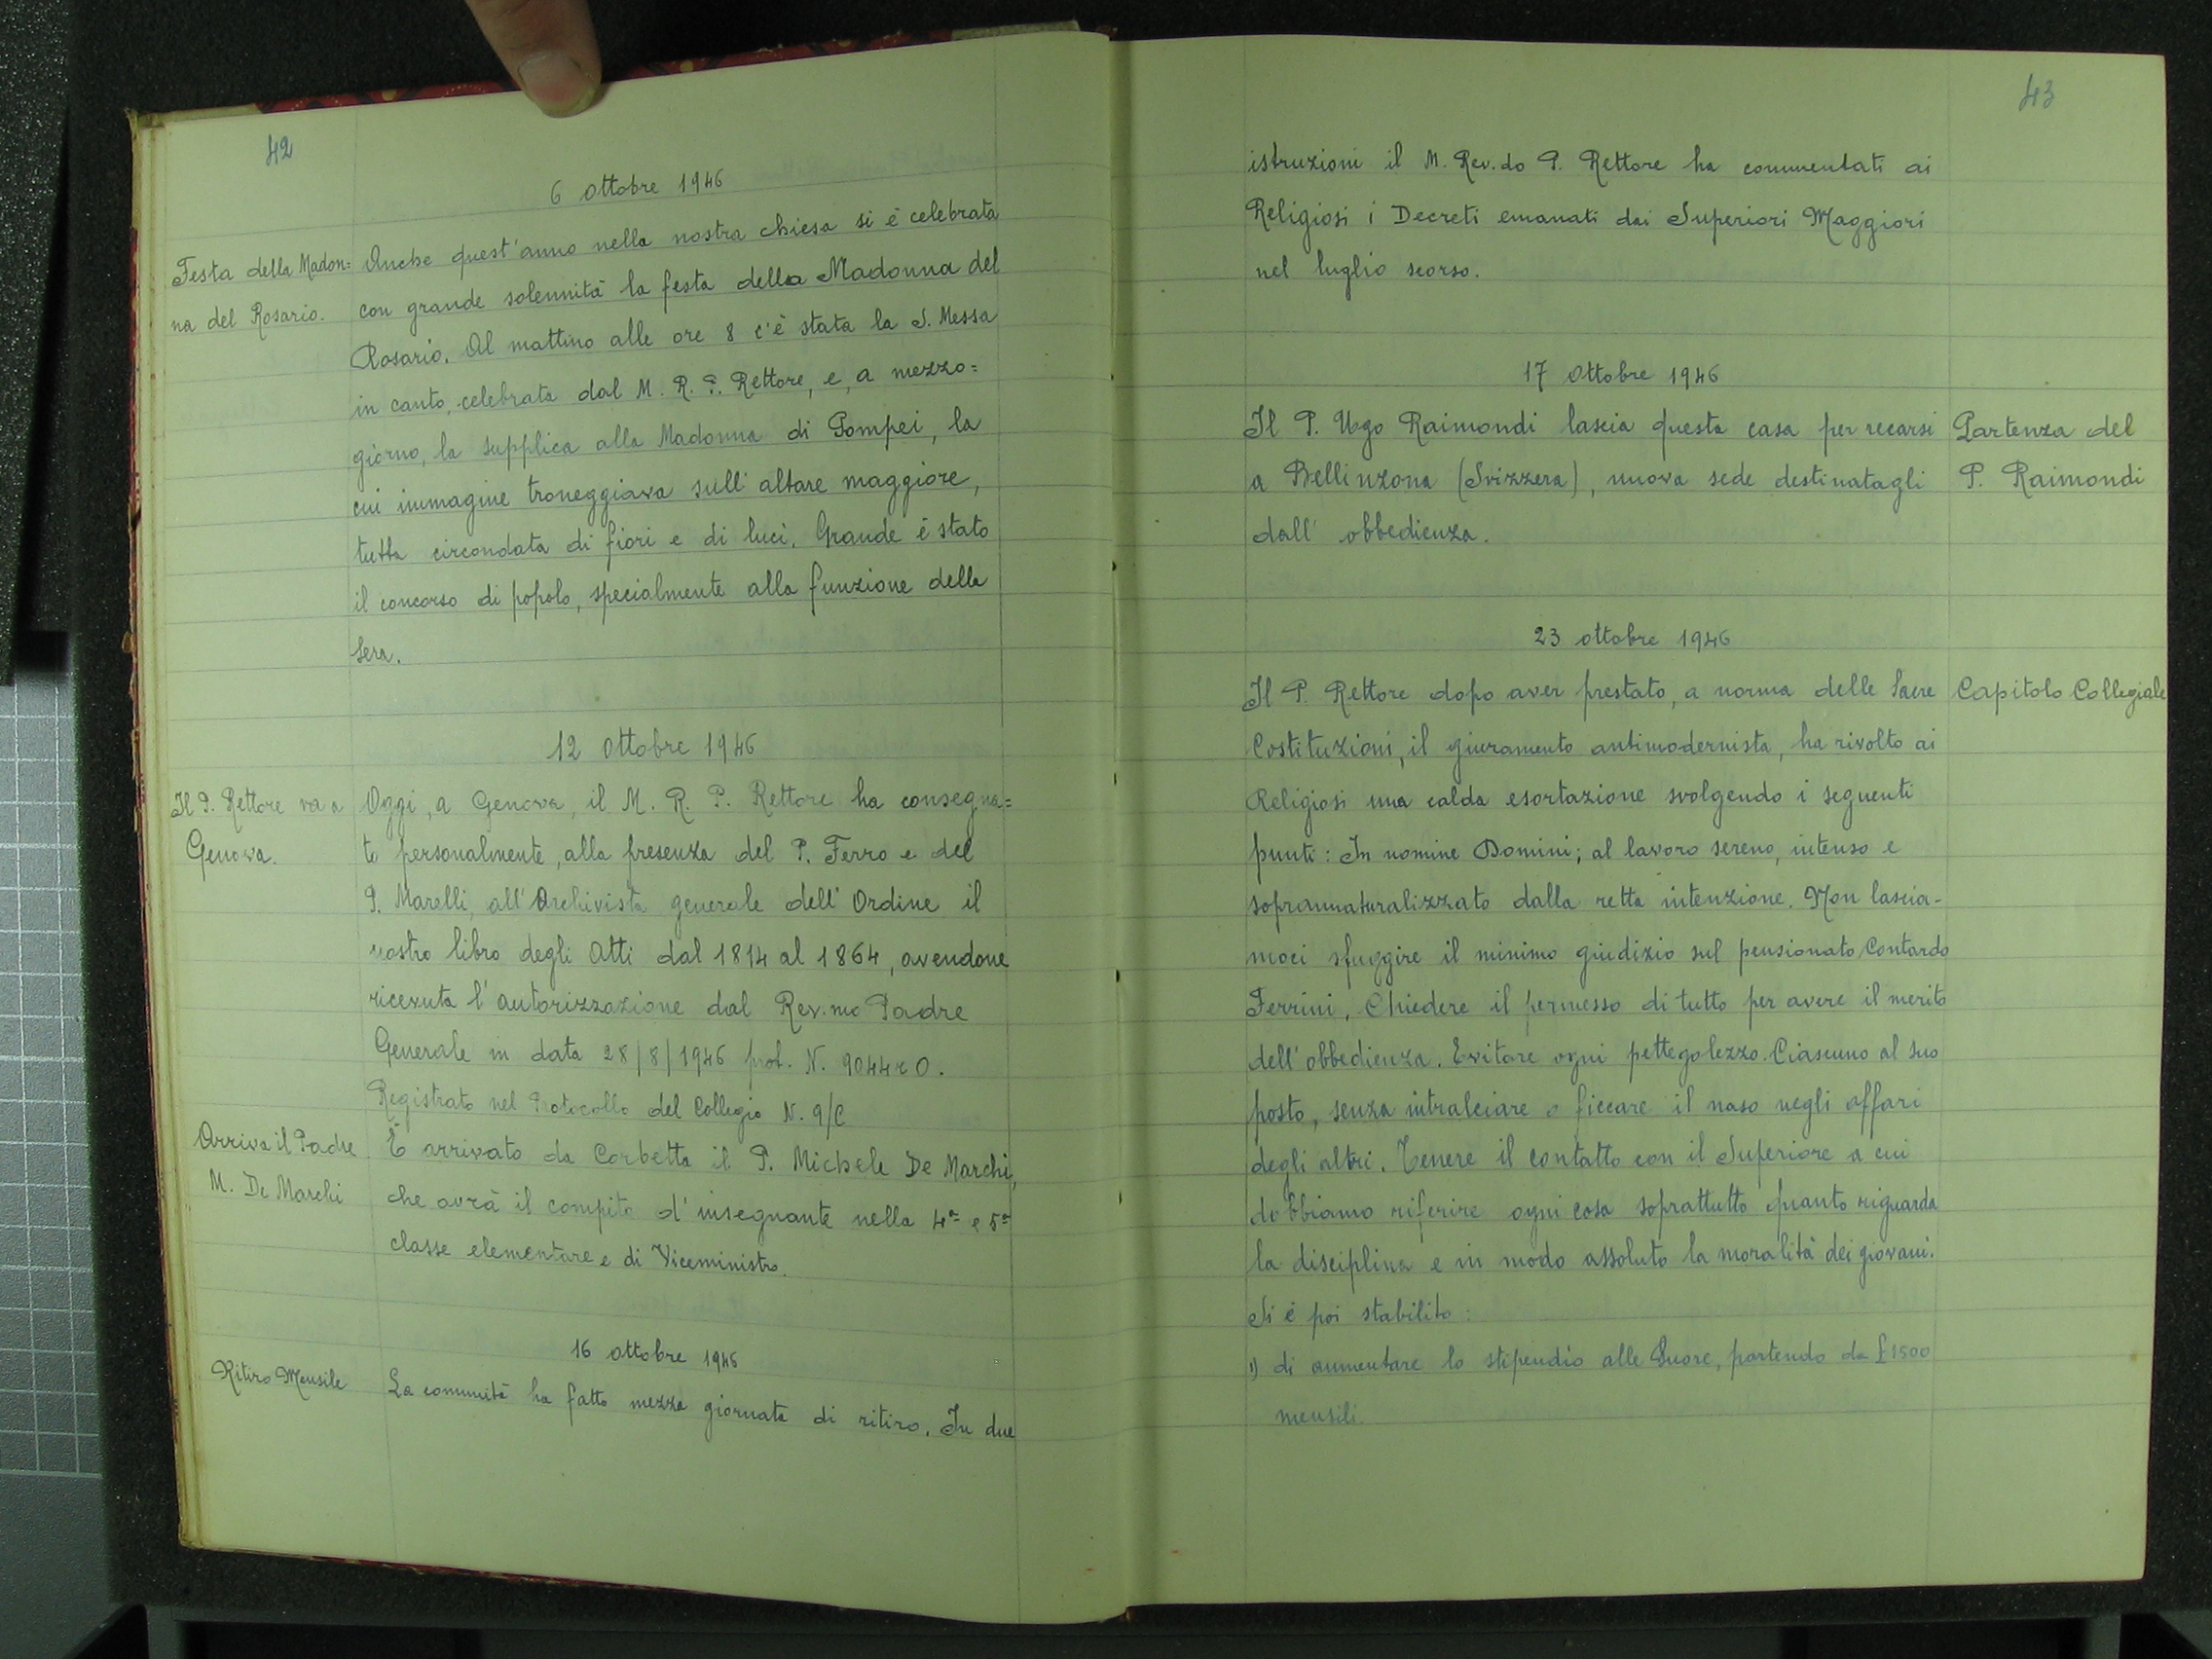 42
6 ottobre 1946
Festa della Madon=
na del Rosario.
Anche quest'anno nella nostra chiesa si è celebrata
con grande solennità la festa della Madonna del
Rosario. Al mattino alle ore 8 c'è stata la S. Messa
in canto, celebrata dal M. R. P. Rettore, e, a mezzo=
giorno, la supplica alla Madonna di Pompei, la
cui immagine troneggiava sull'altare maggiore,
tutta circondata di fiori e di luci. Grande è stato
il concorso di popolo, specialmente alla funzione della
sera.
12 ottobre 1946
Il P. Rettore va a
Genova.
Oggi, a Genova, il M. R. P. Rettore ha consegna=
to personalmente, alla presenza del P. Ferro e del
P. Marelli, all'Archivista generale dell'Ordine il
nostro libro degli Atti dal 1814 al 1864, avendone
ricevuta l'autorizzazione dal Rev.mo Padre
Generale in data 28/8/1946 prot. N. 9044 O.
Registrato nel Protocollo del Collegio N. 9/C
Arriva il Padre
M. De Marchi
È arrivato da Corbetta il P. Michele De Marchi,
che avrà il compito d'insegnante nella 4ª e 5ª
classe elementare e di Viceministro.
16 ottobre 1946
Ritiro Mensile
La comunità ha fatto mezza giornata di ritiro. In due
43
istruzioni il M. Rev.do P. Rettore ha commentati ai
Religiosi i Decreti emanati dai Superiori Maggiori
nel luglio scorso.
17 ottobre 1946
Il P. Ugo Raimondi lascia questa casa per recarsi
a Bellinzona (Svizzera), nuova sede destinatagli
dall'obbedienza.
Partenza del
P. Raimondi
23 ottobre 1946
Il P. Rettore dopo aver prestato, a norma delle Sacre
Costituzioni, il giuramento antimodernista, ha rivolto ai
Religiosi una calda esortazione svolgendo i seguenti
punti: In nomine Domini; al lavoro sereno, intenso e
soprannaturalizzato dalla retta intenzione. Non lascia-
moci sfuggire il minimo giudizio sul pensionato Contardo
Ferrini. Chiedere il permesso di tutto per avere il merito
dell'obbedienza. Evitare ogni pettegolezzo. Ciascuno al suo
posto, senza intralciare o ficcare il naso negli affari
degli altri. Tenere il contatto con il Superiore a cui
dobbiamo riferire ogni cosa soprattutto quanto riguarda
la disciplina e in modo assoluto la moralità dei giovani.
Si è poi stabilito:
1) di aumentare lo stipendio alle Suore, portendo da £1500
mensili.
Capitolo Collegiale